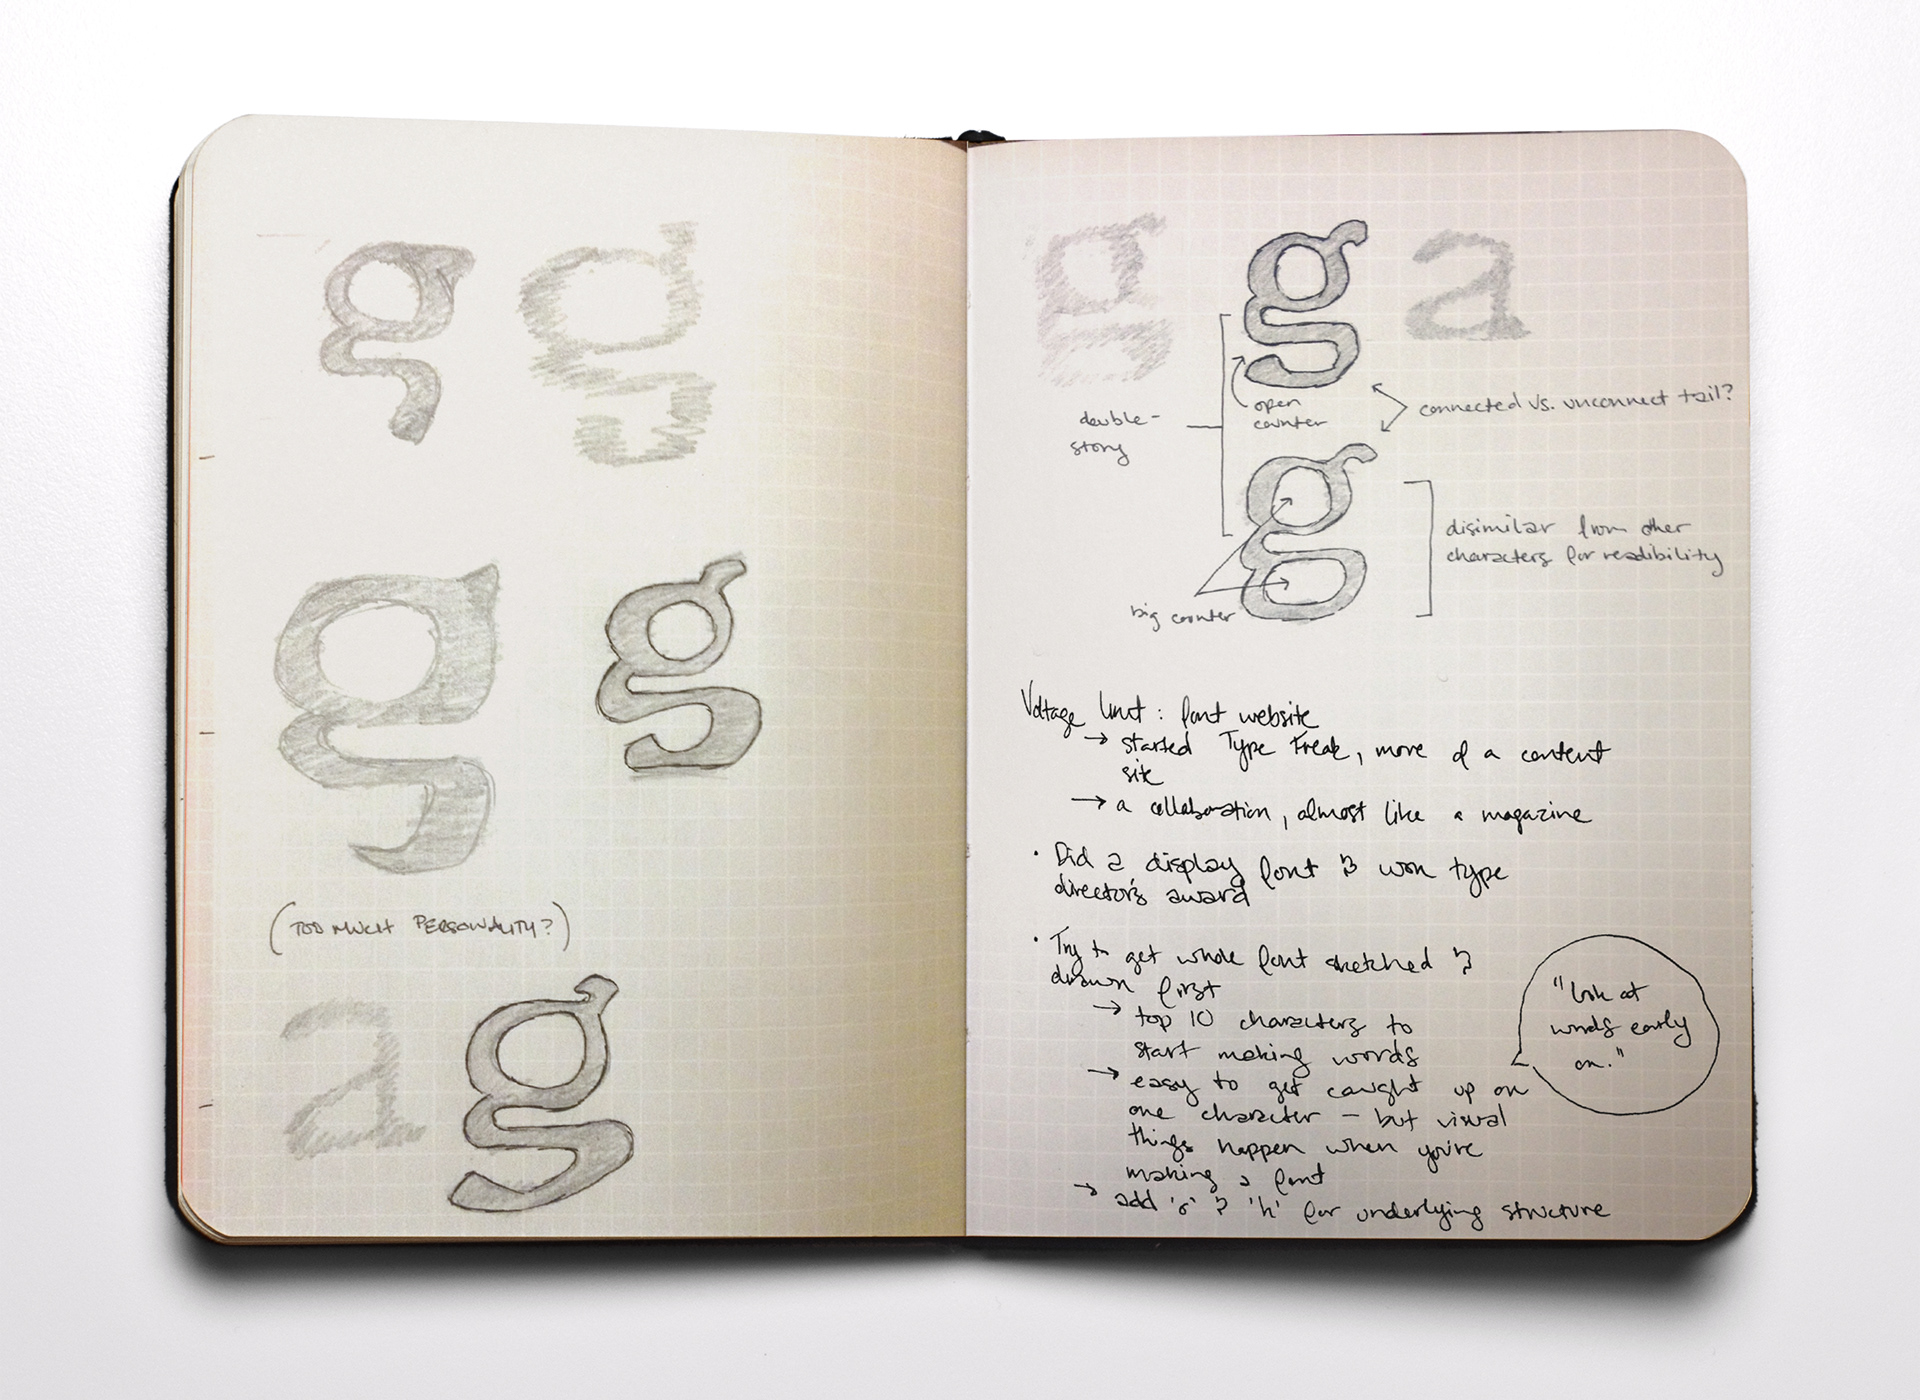 g g
g g
(TOO MUCH PERSONALITY?)
a g
g g a
open
counter
connected vs. unconnect tail?
double-
story
g
disimilar from other
characters for readibility
big counter
Voltage : font website
→ started Type Freak, more of a content
site
→ a collaboration, almost like a magazine
• Did a display font & won type
director's award
• Try to get whole font sketched &
drawn first
→ top 10 characters to
start making words
→ easy to get caught up on
one character – but visual
things happen when you're
making a font
→ add 'o' & 'h' for underlying structure
"look at
words early
on."